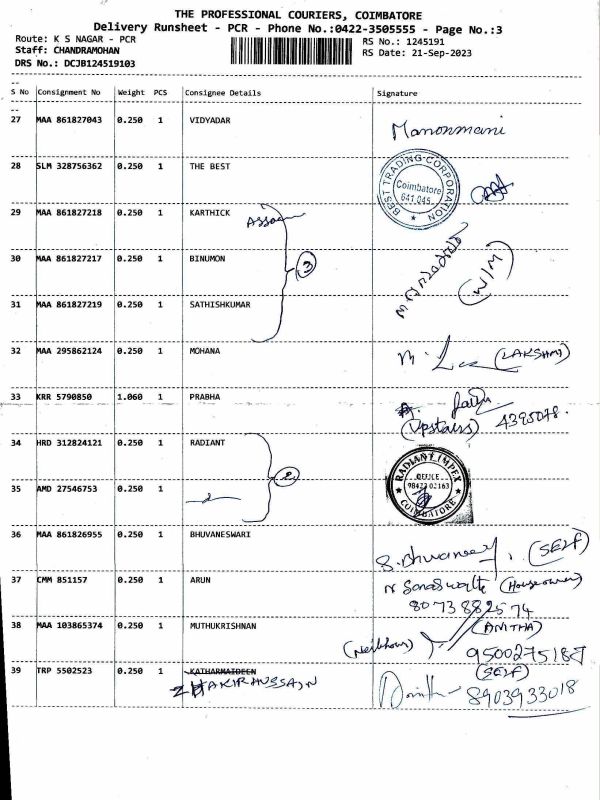 THE PROFESSIONAL COURIERS, COIMBATORE
Delivery Runsheet - PCR - Phone No.:0422-3505555 - Page No.:3
Route: K S NAGAR - PCR RS No.: 1245191
Staff: CHANDRAMOHAN RS Date: 21-Sep-2023
DRS No.: DCJB124519103
S No Consignment No Weight PCS Consignee Details Signature
27 MAA 861827043 0.250 1 VIDYADAR Manonmani
28 SLM 328756362 0.250 1 THE BEST BEST TRADING CORPORATION Coimbatore 641 045
29 MAA 861827218 0.250 1 KARTHICK
30 MAA 861827217 0.250 1 BINUMON 3 (W/M)
31 MAA 861827219 0.250 1 SATHISHKUMAR
32 MAA 295862124 0.250 1 MOHANA (LAKSHMI)
33 KRR 5790850 1.060 1 PRABHA
(Upstairs) 4395078.
34 HRD 312824121 0.250 1 RADIANT RADIANT IMPEX OFFICE COIMBATORE
35 AMD 27546753 0.250 1 2
36 MAA 861826955 0.250 1 BHUVANESWARI (SELF)
37 CMM 851157 0.250 1 ARUN (House owner)
8073882574
38 MAA 103865374 0.250 1 MUTHUKRISHNAN (ANITHA)
(Neibhour)
39 TRP 5502523 0.250 1 KATHARMAIDEEN (SELF)
ZHAKIR HUSSAIN 8903933018